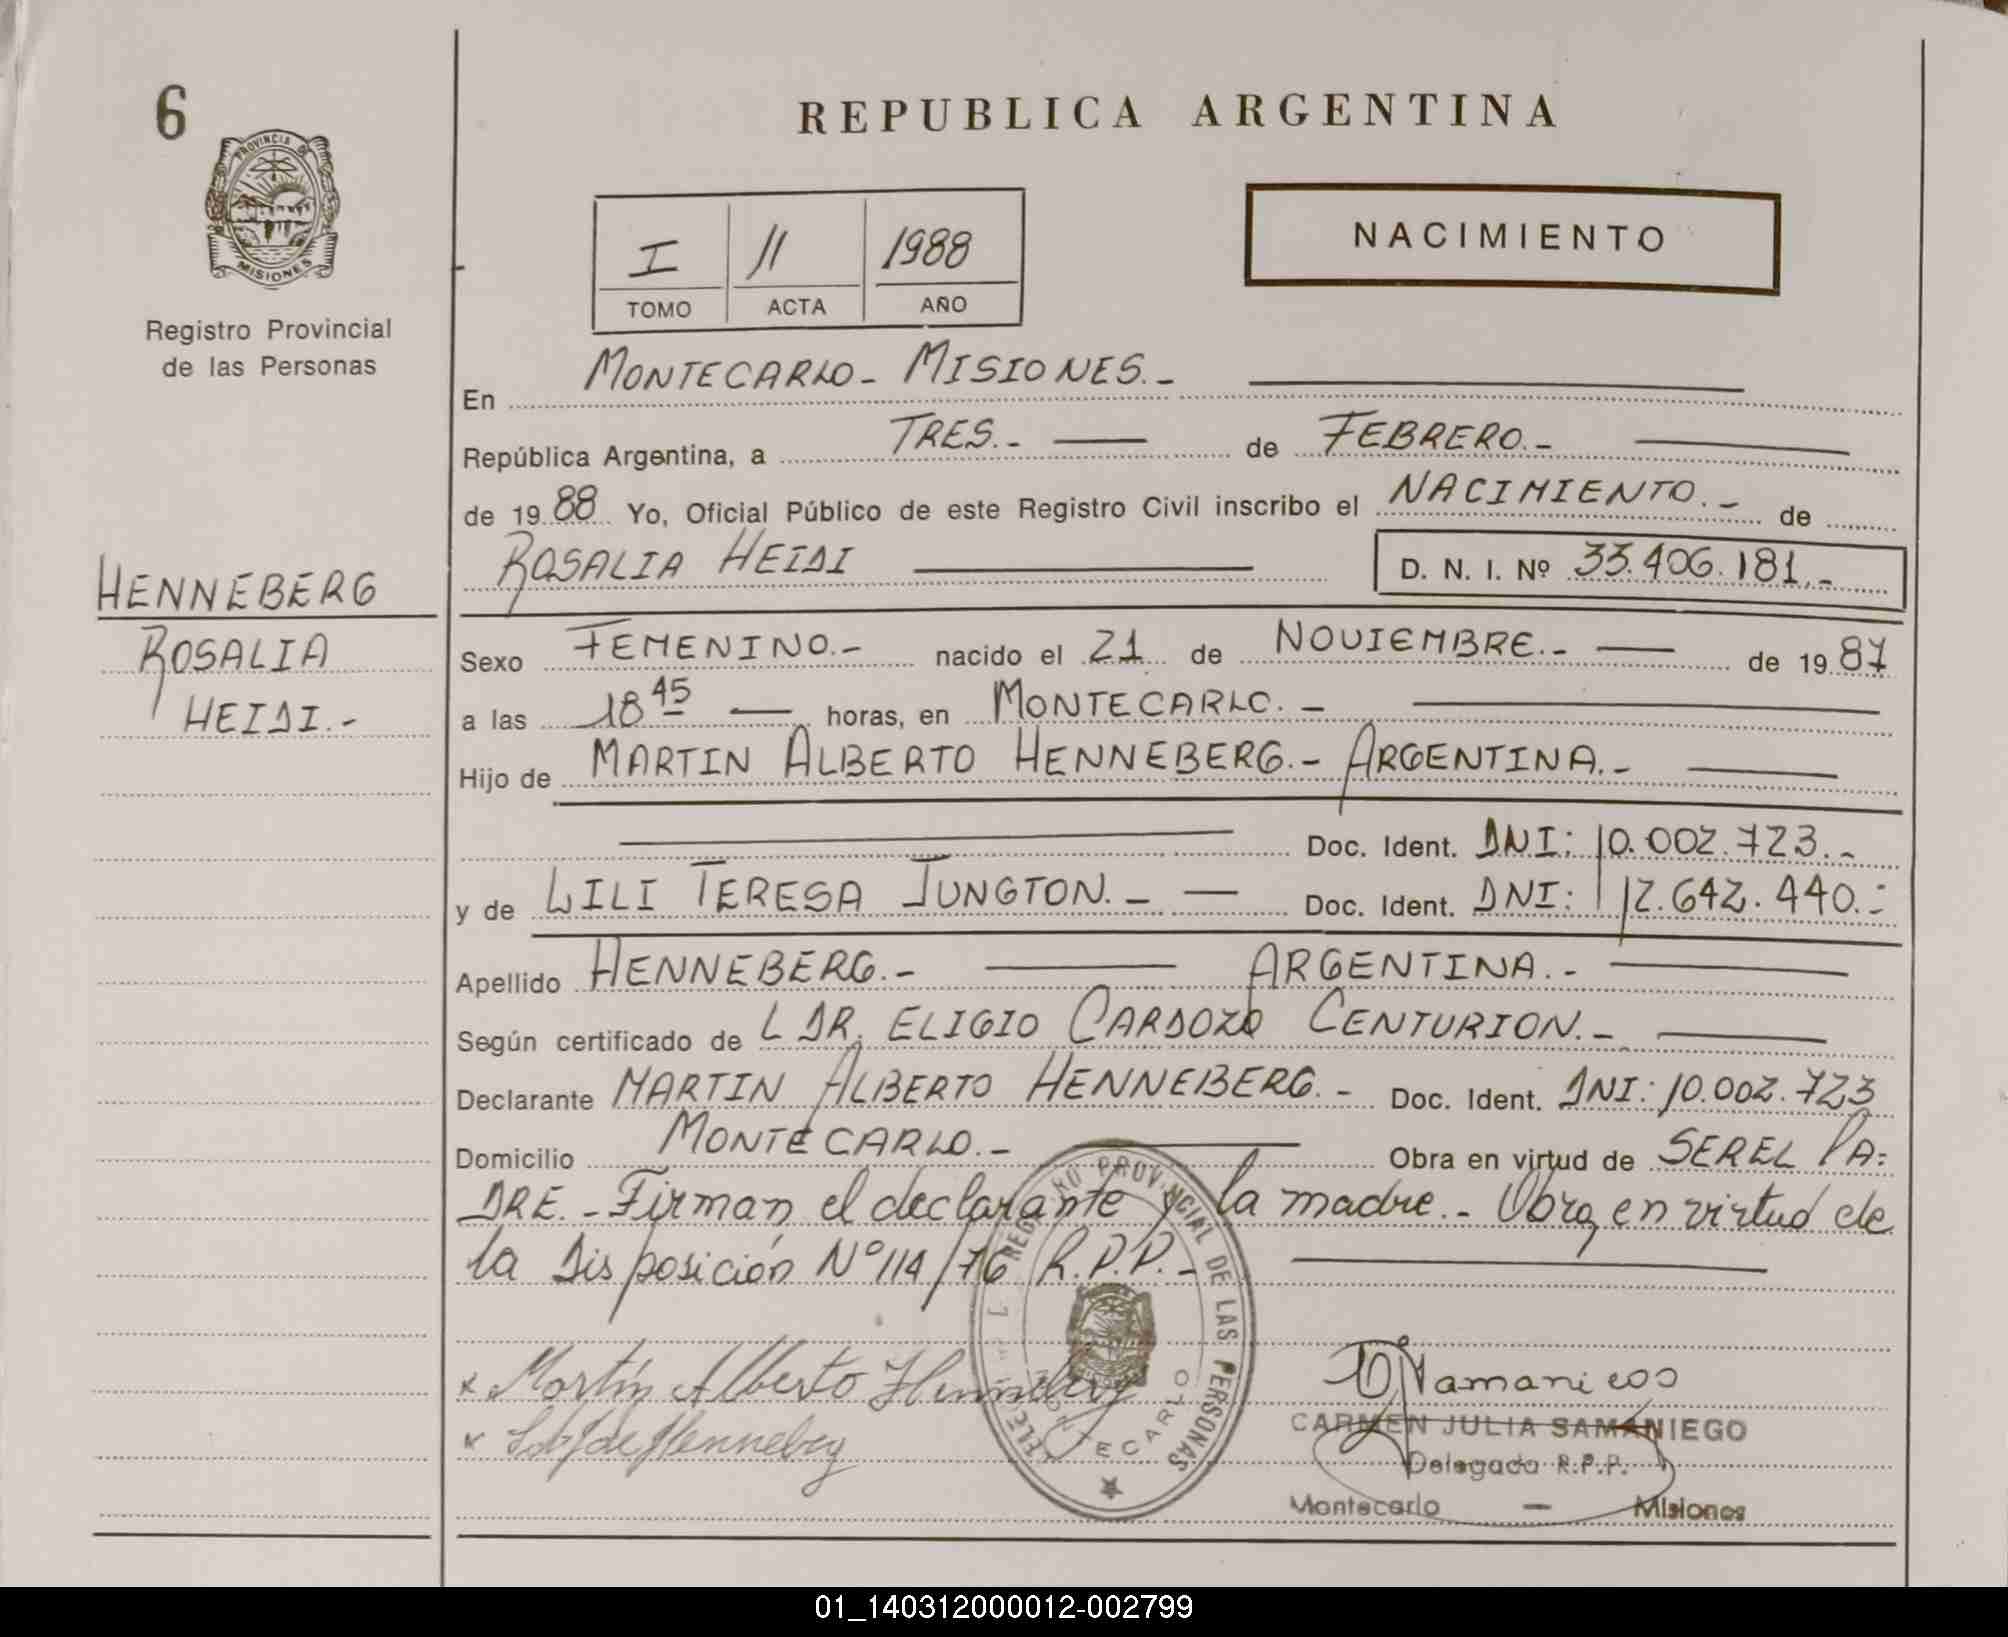 6
PROVINCIA DE
MISIONES
Registro Provincial
de las Personas
REPUBLICA ARGENTINA
NACIMIENTO
I 11 1988
TOMO ACTA AÑO
En MONTECARLO - MISIONES.-
República Argentina, a TRES.- de FEBRERO.-
de 1988 Yo, Oficial Público de este Registro Civil inscribo el NACIMIENTO.- de
ROSALIA HEIDI D. N. I. Nº 33.406.181.-
HENNEBERG
ROSALIA
HEIDI.-
Sexo FEMENINO.- nacido el 21 de NOVIEMBRE.- de 1987
a las 18 45 horas, en MONTECARLO.-
Hijo de MARTIN ALBERTO HENNEBERG.- ARGENTINA.-
Doc. Ident. DNI: 10.002.723.-
y de LILI TERESA JUNGTON.- Doc. Ident. DNI: 12.642.440.-
Apellido HENNEBERG.- ARGENTINA.-
Según certificado de L DR. ELIGIO CARDOZO CENTURION.-
Declarante MARTIN ALBERTO HENNEBERG.- Doc. Ident. DNI: 10.002.723
Domicilio MONTECARLO.- Obra en virtud de SER EL PA=
DRE.- Firman el declarante y la madre.- Obra en virtud de
la Disposición Nº 114/76 R.P.P.-
REGISTRO PROVINCIAL DE LAS PERSONAS
MONTECARLO
x Martín Alberto Henneberg
x de Henneberg
CARMEN JULIA SAMANIEGO
Delegada R.P.P.
Montecarlo - Misiones
01_140312000012-002799